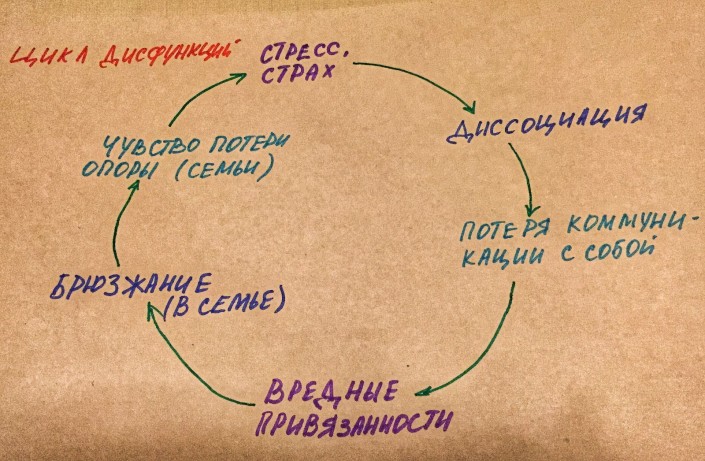 ЦИКЛ ДИСФУНКЦИЙ
СТРЕСС,
СТРАХ
ДИССОЦИАЦИЯ
ПОТЕРЯ КОММУНИ-
КАЦИИ С СОБОЙ
ВРЕДНЫЕ
ПРИВЯЗАННОСТИ
БРЮЗЖАНИЕ
(В СЕМЬЕ)
ЧУВСТВО ПОТЕРИ
ОПОРЫ (СЕМЬИ)